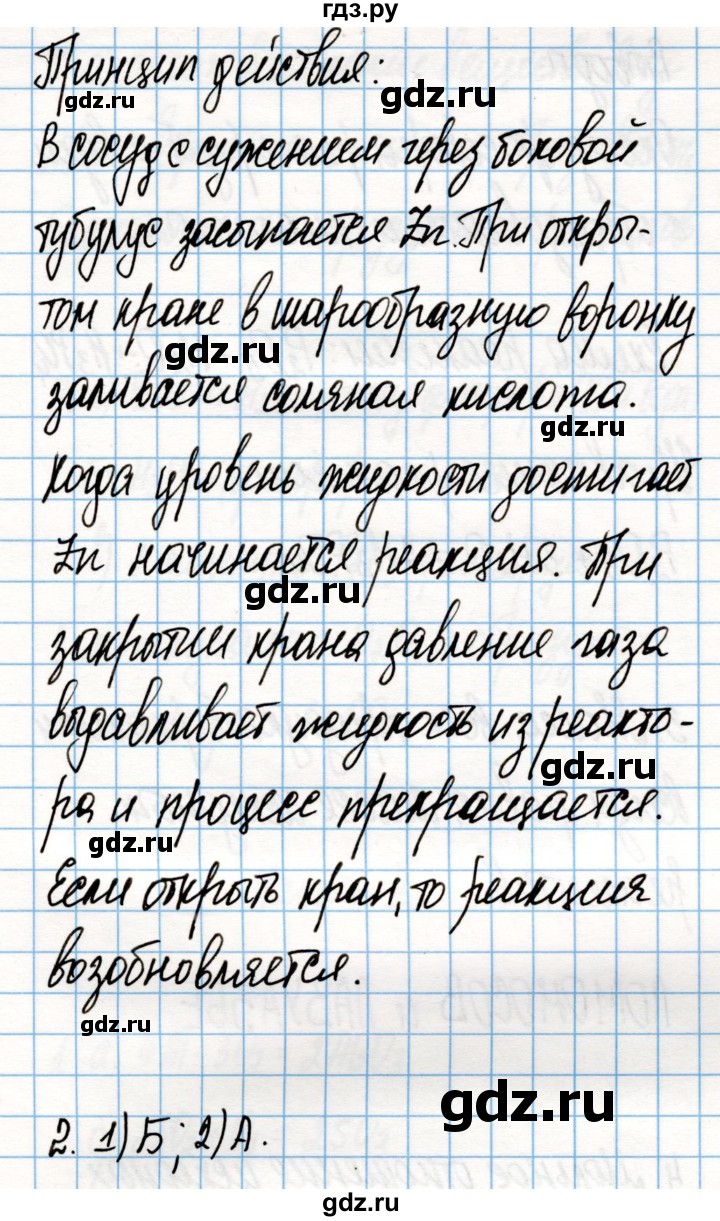 гдз.ру
Принцип действия:
gdz.ru
gdz.ru
В сосуд с сужением через боковой
тубулус засыпается Zn. При откры-
том кране в шарообразную воронку
gdz.ru
заливается соляная кислота.
gdz.ru
Когда уровень жидкости достигает
Zn начинается реакция. При
gdz.ru
закрытии крана давление газа
выдавливает жидкость из реакто-
gdz.ru
ра и процесс прекращается.
gdz.ru
Если открыть кран, то реакция
возобновляется.
gdz.ru
gdz.ru
2. 1) Б; 2) А.
gdz.ru